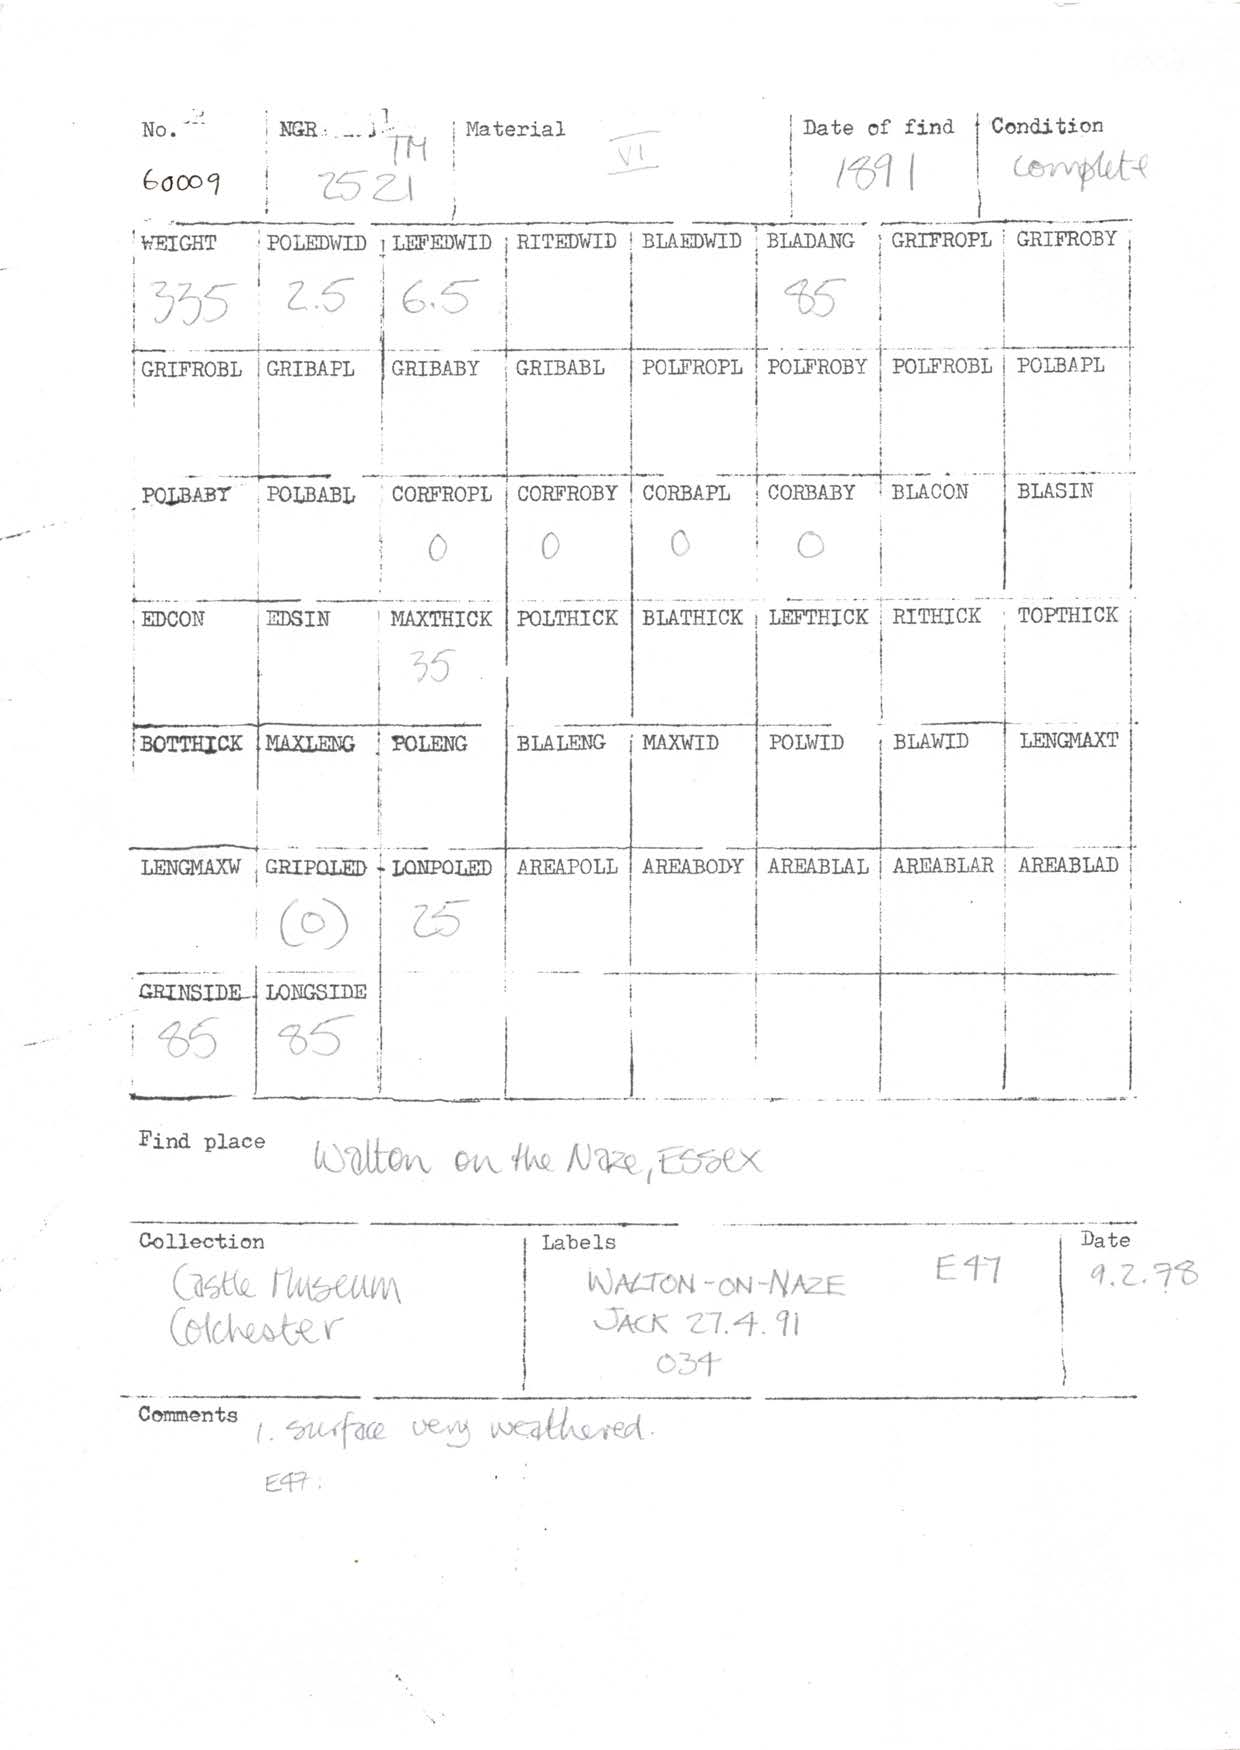 No. NGR Material Date of find Condition
60009 TM 2521 VI 1891 complete
WEIGHT POLEDWID LEFEDWID RITEDWID BLAEDWID BLADANG GRIFROPL GRIFROBY
335 2.5 6.5 85
GRIFROBL GRIBAPL GRIBABY GRIBABL POLFROPL POLFROBY POLFROBL POLBAPL
POLBABY POLBABL CORFROPL CORFROBY CORBAPL CORBABY BLACON BLASIN
0 0 0 0
EDCON EDSIN MAXTHICK POLTHICK BLATHICK LEFTHICK RITHICK TOPTHICK
35
BOTTHICK MAXLENG POLENG BLALENG MAXWID POLWID BLAWID LENGMAXT
LENGMAXW GRIPOLED LONPOLED AREAPOLL AREABODY AREABLAL AREABLAR AREABLAD
(0) 25
GRINSIDE LONGSIDE
85 85
Find place Walton on the Naze, Essex
Collection Labels Date
Castle Museum WALTON-ON-NAZE E47 9.2.78
Colchester JACK 27.4.91
034
Comments 1. surface very weathered.
E47.